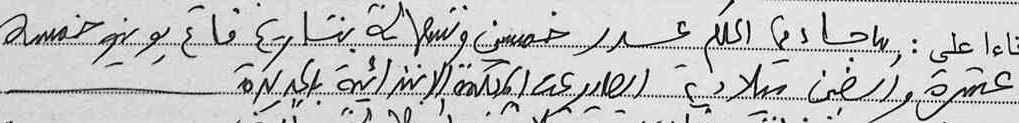 ناءا على : ما جاء في الحكم عدد خمسين وتسعمائة بتاريخ فاتح يونيو خمسة
عشرة وألفين ميلادي الصادر عن المحكمة الابتدائية بالجديدة